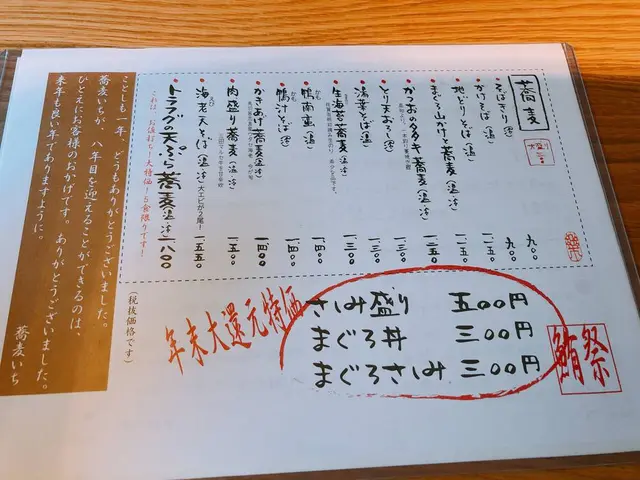 蕎麦
大盛り
三〇〇
せいろそば(冷) 九〇〇
かけそば(温) 九〇〇
地どりそば(温) 一、二五〇
まぐろ山かけと蕎麦(温・冷) 一、二五〇
かつおのタタキ蕎麦(温・冷) 一、三〇〇
とり天おろし(冷) 一、三〇〇
湯葉そば(温) 一、三〇〇
生海苔蕎麦(温・冷) 一、三〇〇
鴨南蛮(温) 一、四〇〇
鴨汁そば(冷) 一、四〇〇
かきあげ蕎麦(温・冷) 一、四〇〇
肉盛り蕎麦(温・冷) 一、五〇〇
海老天そば(温・冷) 大エビがう尾 一、五五〇
トラフグの天ぷら蕎麦(温・冷) 一、八〇〇
これは お値打ち!大特価!5食限りです!
(税抜価格です)
さしみ盛り 五〇〇円
まぐろ丼 三〇〇円
まぐろさしみ 三〇〇円
年末大還元特価
鮪祭
ことしも一年、どうもありがとうございました。
蕎麦いちが、八年目を迎えることができるのは、
ひとえにお客様のおかげです。ありがとうございました。
来年も良い年でありますように。
蕎麦いち